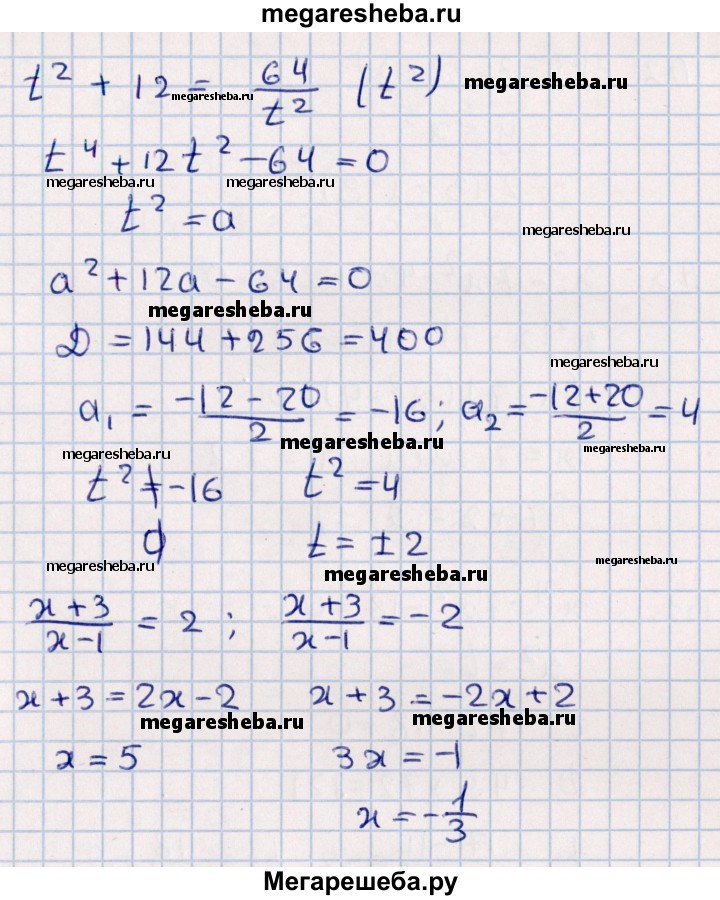 megaresheba.ru
t² + 12 = 64/t² (t²) megaresheba.ru
megaresheba.ru
t⁴ + 12t² - 64 = 0
megaresheba.ru megaresheba.ru
t² = a
megaresheba.ru
a² + 12a - 64 = 0
megaresheba.ru
D = 144 + 256 = 400
megaresheba.ru
a₁ = (-12 - 20)/2 = -16; a₂ = (-12 + 20)/2 = 4
megaresheba.ru megaresheba.ru megaresheba.ru
t² ≠ -16 t² = 4
∅ t = ±2
megaresheba.ru megaresheba.ru megaresheba.ru
(x + 3)/(x - 1) = 2; (x + 3)/(x - 1) = -2
x + 3 = 2x - 2 x + 3 = -2x + 2
megaresheba.ru megaresheba.ru
x = 5 3x = -1
x = -1/3
Мегарешеба.ру